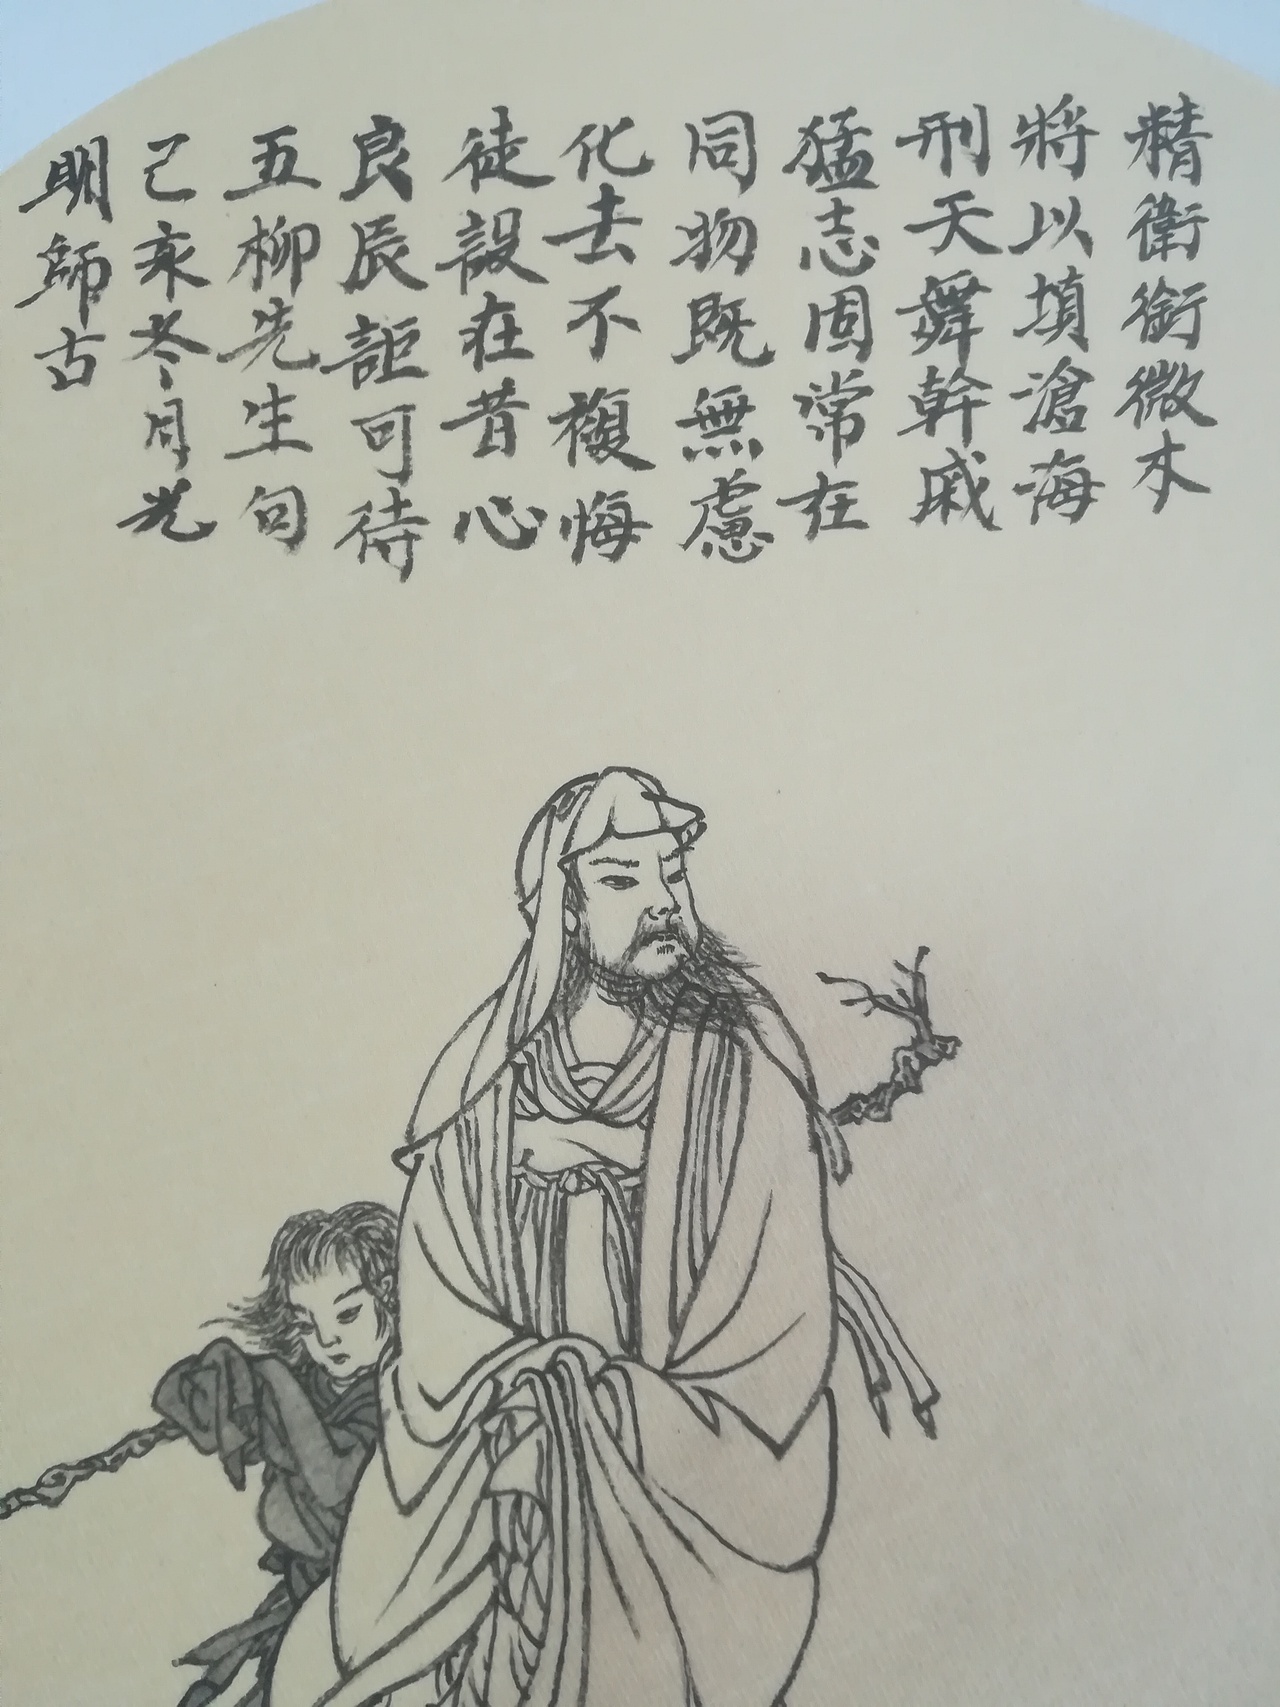 精衛銜微木
將以填滄海
刑天舞幹戚
猛志固常在
同物既無慮
化去不複悔
徒設在昔心
良辰詎可待
五柳先生句
己亥冬月光
明師古